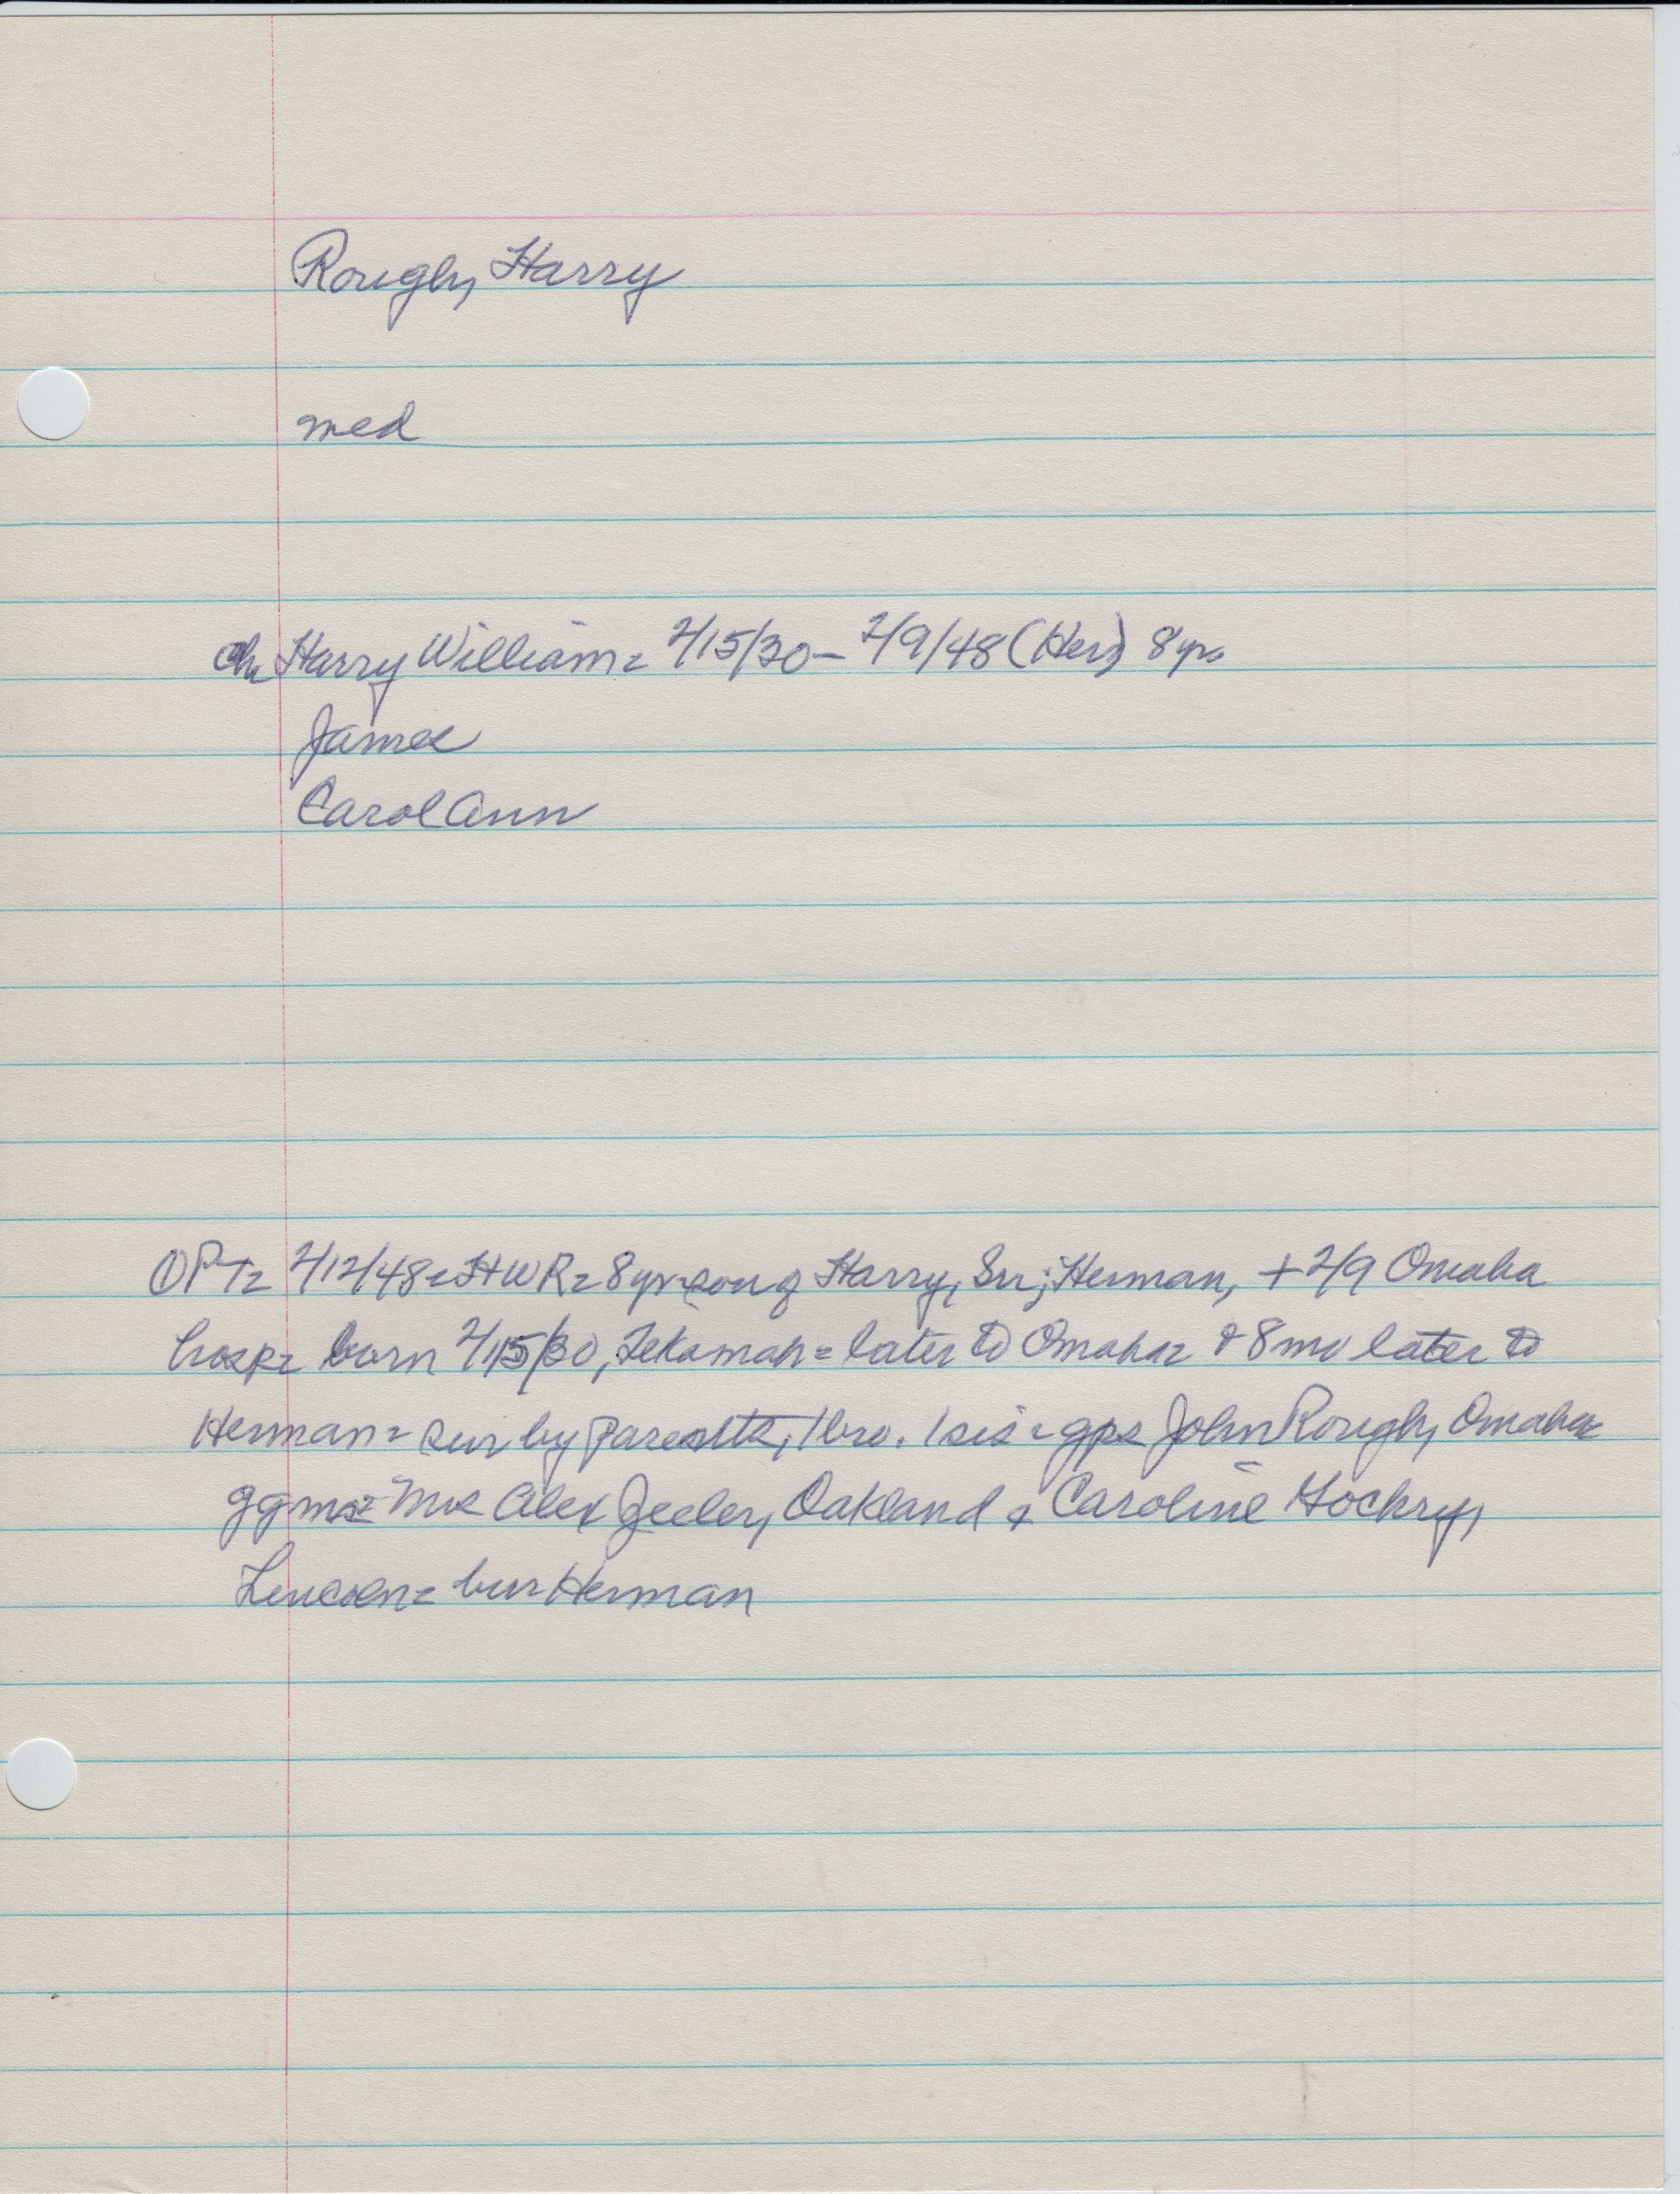 Rough, Harry
med
ch Harry William = 2/15/30 - 2/9/48 (Her) 8 yrs
James
Carol Ann
OPT= 2/12/48 = HWR = 8 yr son of Harry, Sr; Herman, + 2/9 Omaha
hosp= born 2/15/30, Tekamah = later to Omaha= & 8 mo later to
Herman = sur by parents, 1 bro. 1 sis = gps John Rough, Omaha=
ggma= Mrs Alex Jeeler, Oakland & Caroline Hockry,
Lincoln= bur Herman